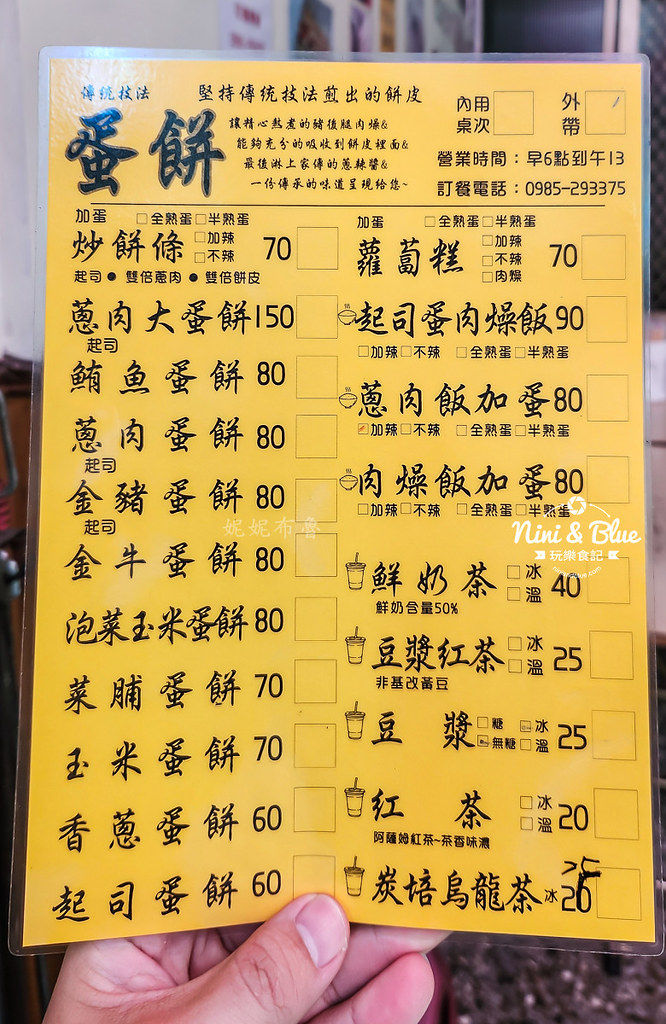 傳統技法
蛋餅
堅持傳統技法煎出的餅皮
讓精心熬煮的豬後腿肉燥&
能夠充分的吸收到餅皮裡面&
最後淋上家傳的蔥辣醬&
一份傳承的味道呈現給您~
內用桌次
外帶
營業時間：早6點到午13
訂餐電話：0985-293375
加蛋 全熟蛋 半熟蛋
炒餅條 加辣 不辣 70
起司 ● 雙倍蔥肉 ● 雙倍餅皮
蔥肉大蛋餅 150
起司
鮪魚蛋餅 80
蔥肉蛋餅 80
起司
金豬蛋餅 80
起司
金牛蛋餅 80
泡菜玉米蛋餅 80
菜脯蛋餅 70
玉米蛋餅 70
香蔥蛋餅 60
起司蛋餅 60
加蛋 全熟蛋 半熟蛋
蘿蔔糕 加辣 不辣 肉燥 70
起司蛋肉燥飯 90
加辣 不辣 全熟蛋 半熟蛋
蔥肉飯加蛋 80
加辣 不辣 全熟蛋 半熟蛋
肉燥飯加蛋 80
加辣 不辣 全熟蛋 半熟蛋
鮮奶茶 冰 溫 40
鮮奶含量50%
豆漿紅茶 冰 溫 25
非基改黃豆
豆漿 糖 無糖 冰 溫 25
紅茶 冰 溫 20
阿薩姆紅茶~茶香味濃
炭培烏龍茶 冰 20
25
妮妮布魯
Nini & Blue
玩樂食記